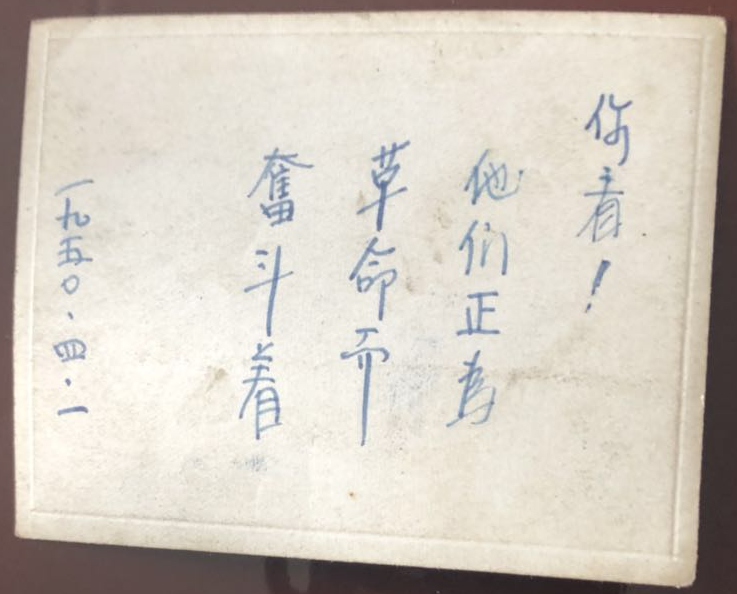 你看！
他们正为
革命而
奮斗着
一九五〇·四·一